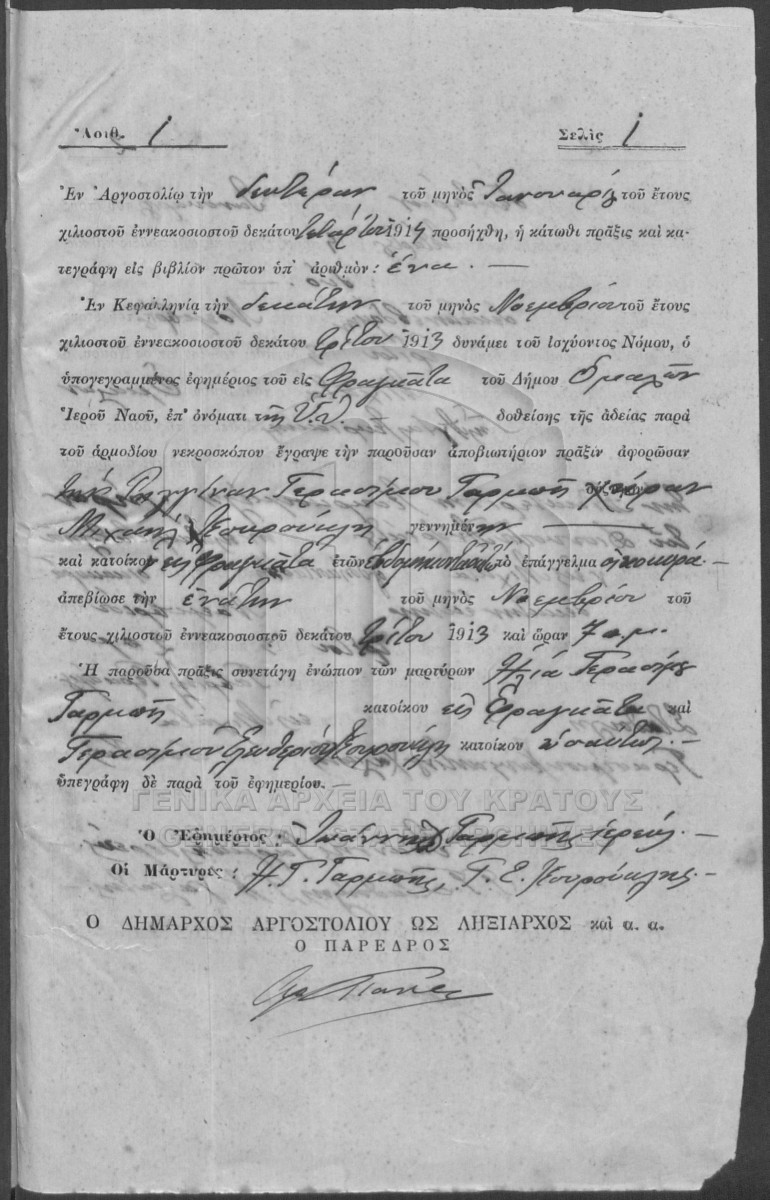 Ἀριθ. 1 Σελὶς 1
Ἐν Ἀργοστολίῳ τὴν δευτέραν τοῦ μηνὸς Ἰανουαρίου τοῦ ἔτους
χιλιοστοῦ ἐννεακοσιοστοῦ δεκάτου τετάρτου 1914 προσήχθη, ἡ κάτωθι πρᾶξις καὶ κα-
τεγράφη εἰς βιβλίον πρῶτον ὑπ' ἀριθμὸν: ἕνα. —
Ἐν Κεφαλληνίᾳ τὴν δεκάτην τοῦ μηνὸς Νοεμβρίου τοῦ ἔτους
χιλιοστοῦ ἐννεακοσιοστοῦ δεκάτου τρίτου 1913 δυνάμει τοῦ ἰσχύοντος Νόμου, ὁ
ὑπογεγραμμένος ἐφημέριος τοῦ εἰς Φραγκᾶτα τοῦ Δήμου Ὁμαλῶν
Ἱεροῦ Ναοῦ, ἐπ' ὀνόματι τῆς δοθείσης τῆς ἀδείας παρὰ
τοῦ ἁρμοδίου νεκροσκόπου ἔγραψε τὴν παροῦσαν ἀποβιωτήριον πρᾶξιν ἀφορῶσαν
τὴν Γερασίμου Γαρμπῆ χήραν
Μιχαὴλ Κουρούκλη γεννημένην —
καὶ κατοίκου εἰς Φραγκᾶτα ἐτῶν τὸ ἐπάγγελμα οἰκοκυρά. —
ἀπεβίωσε τὴν ἐνάτην τοῦ μηνὸς Νοεμβρίου τοῦ
ἔτους χιλιοστοῦ ἐννεακοσιοστοῦ δεκάτου τρίτου 1913 καὶ ὥραν 7 π.μ.
Ἡ παροῦσα πρᾶξις συνετάγη ἐνώπιον τῶν μαρτύρων Ἠλία Γερασίμου
Γαρμπῆ κατοίκου εἰς Φραγκᾶτα καὶ
Γερασίμου Ἐλευθερίου Κουρούκλη κατοίκου ὡσαύτως. —
ὑπεγράφη δὲ παρὰ τοῦ ἐφημερίου. —
ΓΕΝΙΚΑ ΑΡΧΕΙΑ ΤΟΥ ΚΡΑΤΟΥΣ
GENERAL STATE ARCHIVES
Ὁ Ἐφημέριος: Ἰωάννης Γαρμπῆς ἱερεύς. —
Οἱ Μάρτυρες: Η. Γ. Γαρμπῆς, Γ. Ε. Κουρούκλης. —
Ο ΔΗΜΑΡΧΟΣ ΑΡΓΟΣΤΟΛΙΟΥ ΩΣ ΛΗΞΙΑΡΧΟΣ καὶ α. α.
Ο ΠΑΡΕΔΡΟΣ